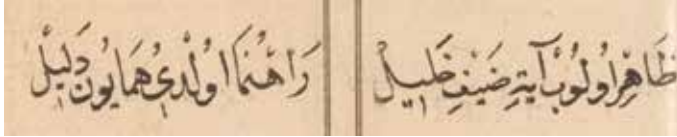 ظَاهِر اولُوبْ آيَتِ ضَيْفِ خَلِيلْ رَاهْنُمَا اولْدِي هُمَايُون دَلِيلْ